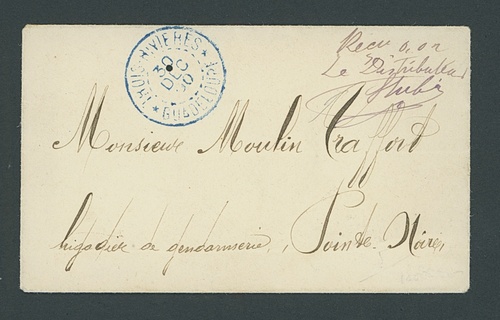 TROIS-RIVIERES
30
DEC
90
GUADELOUPE
Reçu 0,02
Le Distributeur
Monsieur Moulin Trafford
brigadier de gendarmerie, Pointe-Noire,